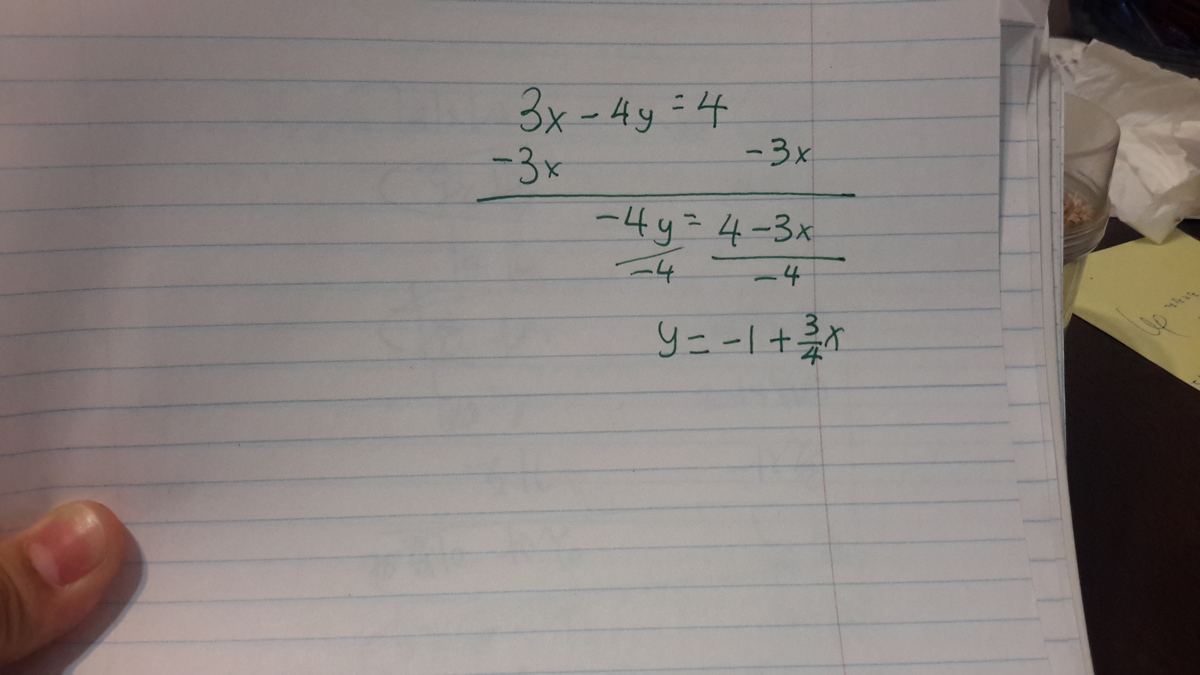 3x - 4y = 4
-3x -3x
-4y = 4 - 3x
-4 -4
y = -1 + 3/4 x